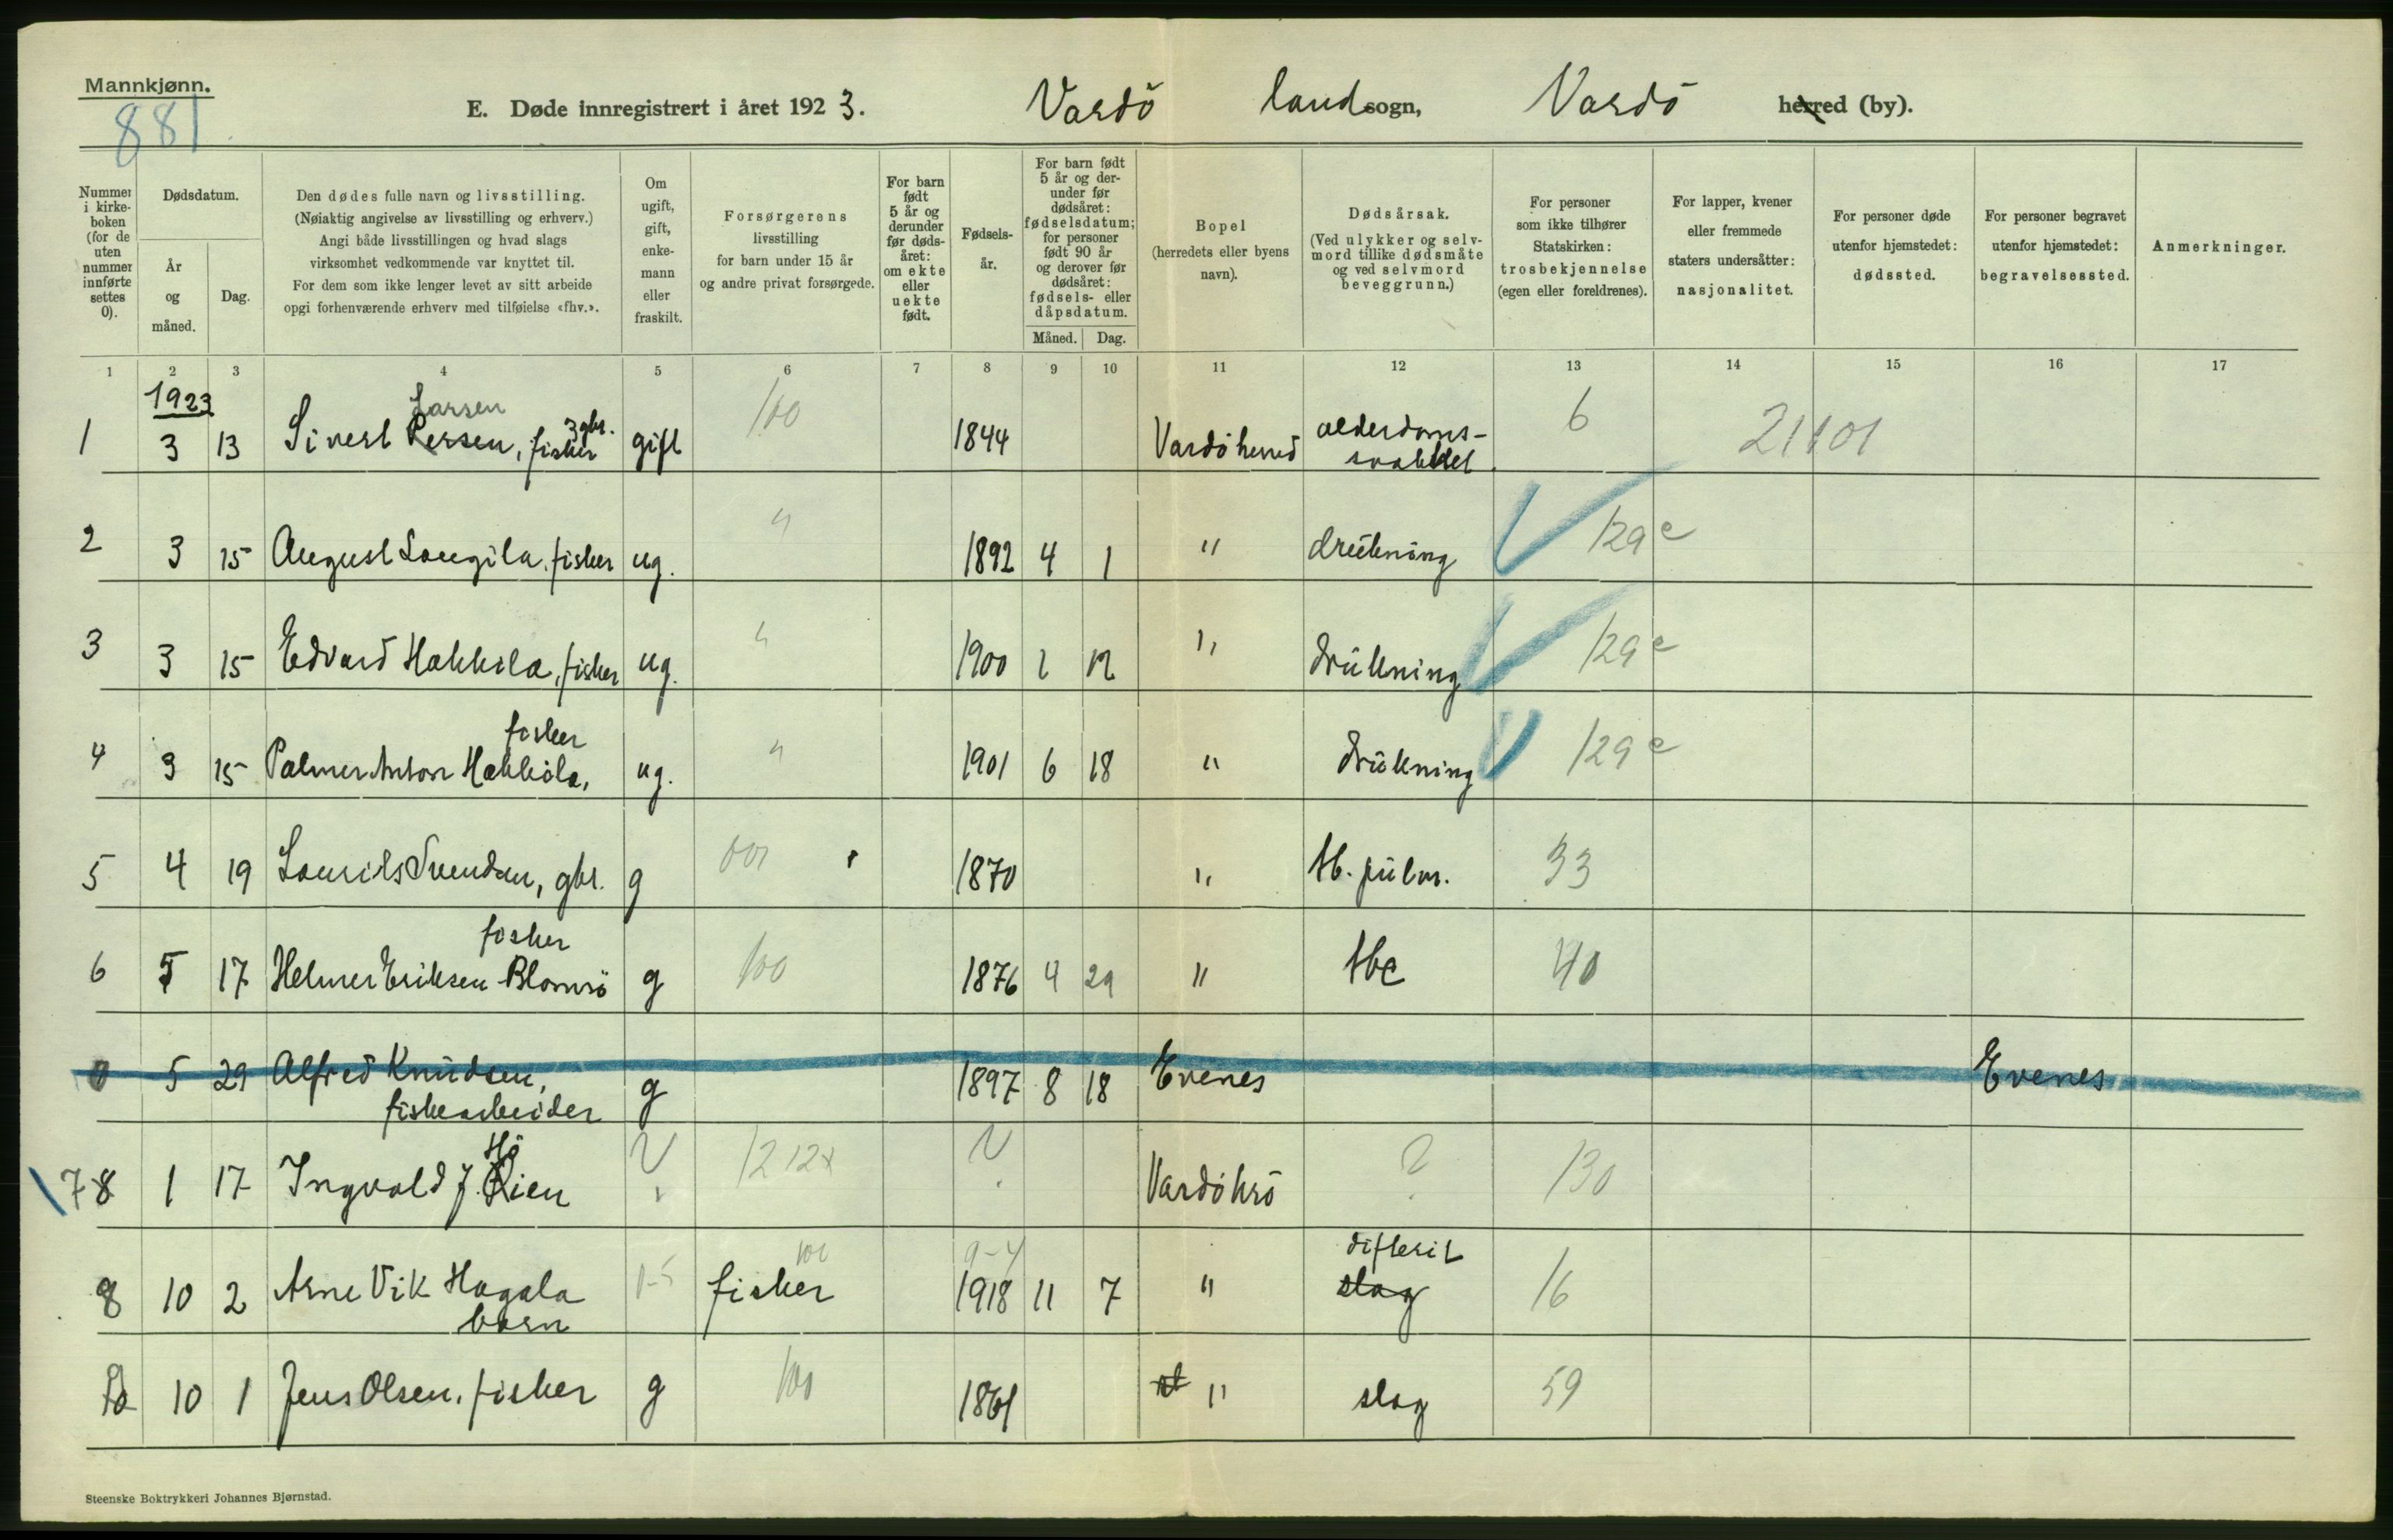 Mannkjønn.
881
E. Døde innregistrert i året 1923. Vardö landsogn, Vardö herred (by).
Nummer i kirkeboken (for de uten nummer innførte settes 0).
Dødsdatum.
År og måned.
Dag.
Den dødes fulle navn og livsstilling.
(Nøiaktig angivelse av livsstilling og erhverv.)
Angi både livsstillingen og hvad slags
virksomhet vedkommende var knyttet til.
For dem som ikke lenger levet av sitt arbeide
opgi forhenværende erhverv med tilføielse «fhv.».
Om ugift, gift, enkemann eller fraskilt.
Forsørgerens
livsstilling
for barn under 15 år
og andre privat forsørgede.
For barn født 5 år og derunder før dødsåret: om ekte eller uekte født.
Fødselsår.
For barn født 5 år og derunder før dødsåret: fødselsdatum; for personer født 90 år og derover før dødsåret: fødsels- eller dåpsdatum.
Måned.
Dag.
Bopel
(herredets eller byens
navn).
Dødsårsak.
(Ved ulykker og selvmord tillike dødsmåte og ved selvmord beveggrunn.)
For personer
som ikke tilhører
Statskirken:
trosbekjennelse
(egen eller foreldrenes).
For lapper, kvener
eller fremmede
staters undersåtter:
nasjonalitet.
For personer døde
utenfor hjemstedet:
dødssted.
For personer begravet
utenfor hjemstedet:
begravelsessted.
Anmerkninger.
1 2 3 4 5 6 7 8 9 10 11 12 13 14 15 16 17
1923
Larsen
1 3 13 Sivert Persen, fisker gbr. gift 100 1844 Vardö herred alderdoms- 6 21101
2 3 15 August Laugila, fisker ug. " 1892 4 1 " drukning 129 e
3 3 15 Edvard Hakkila, fisker ug. " 1900 12 " drukning 129 e
fisker
4 3 15 Palmer Anton Hakkila, ug. " 1901 6 18 " drukning 129 e
5 4 19 Laurits Svendsen, gbr. g 001 1870 " tb. pulm. 33
fisker
6 5 17 Helmer Eriksen Blomsö g 100 1876 4 29 " tbc 40
0 5 29 Alfred Knudsen, g 1897 8 18 Evenes Evenes
fiskearbeider
Hö
78 1 17 Ingvald J. ien ? 12 12x ? Vardö hrd ? 130
difterit
8 10 2 Arne Vik Hagala 0-5 fisker 100 9-4 1918 11 7 " slag 16
barn
10 1 Jens Olsen, fisker g 100 1861 " slag 59
Steenske Boktrykkeri Johannes Bjørnstad.